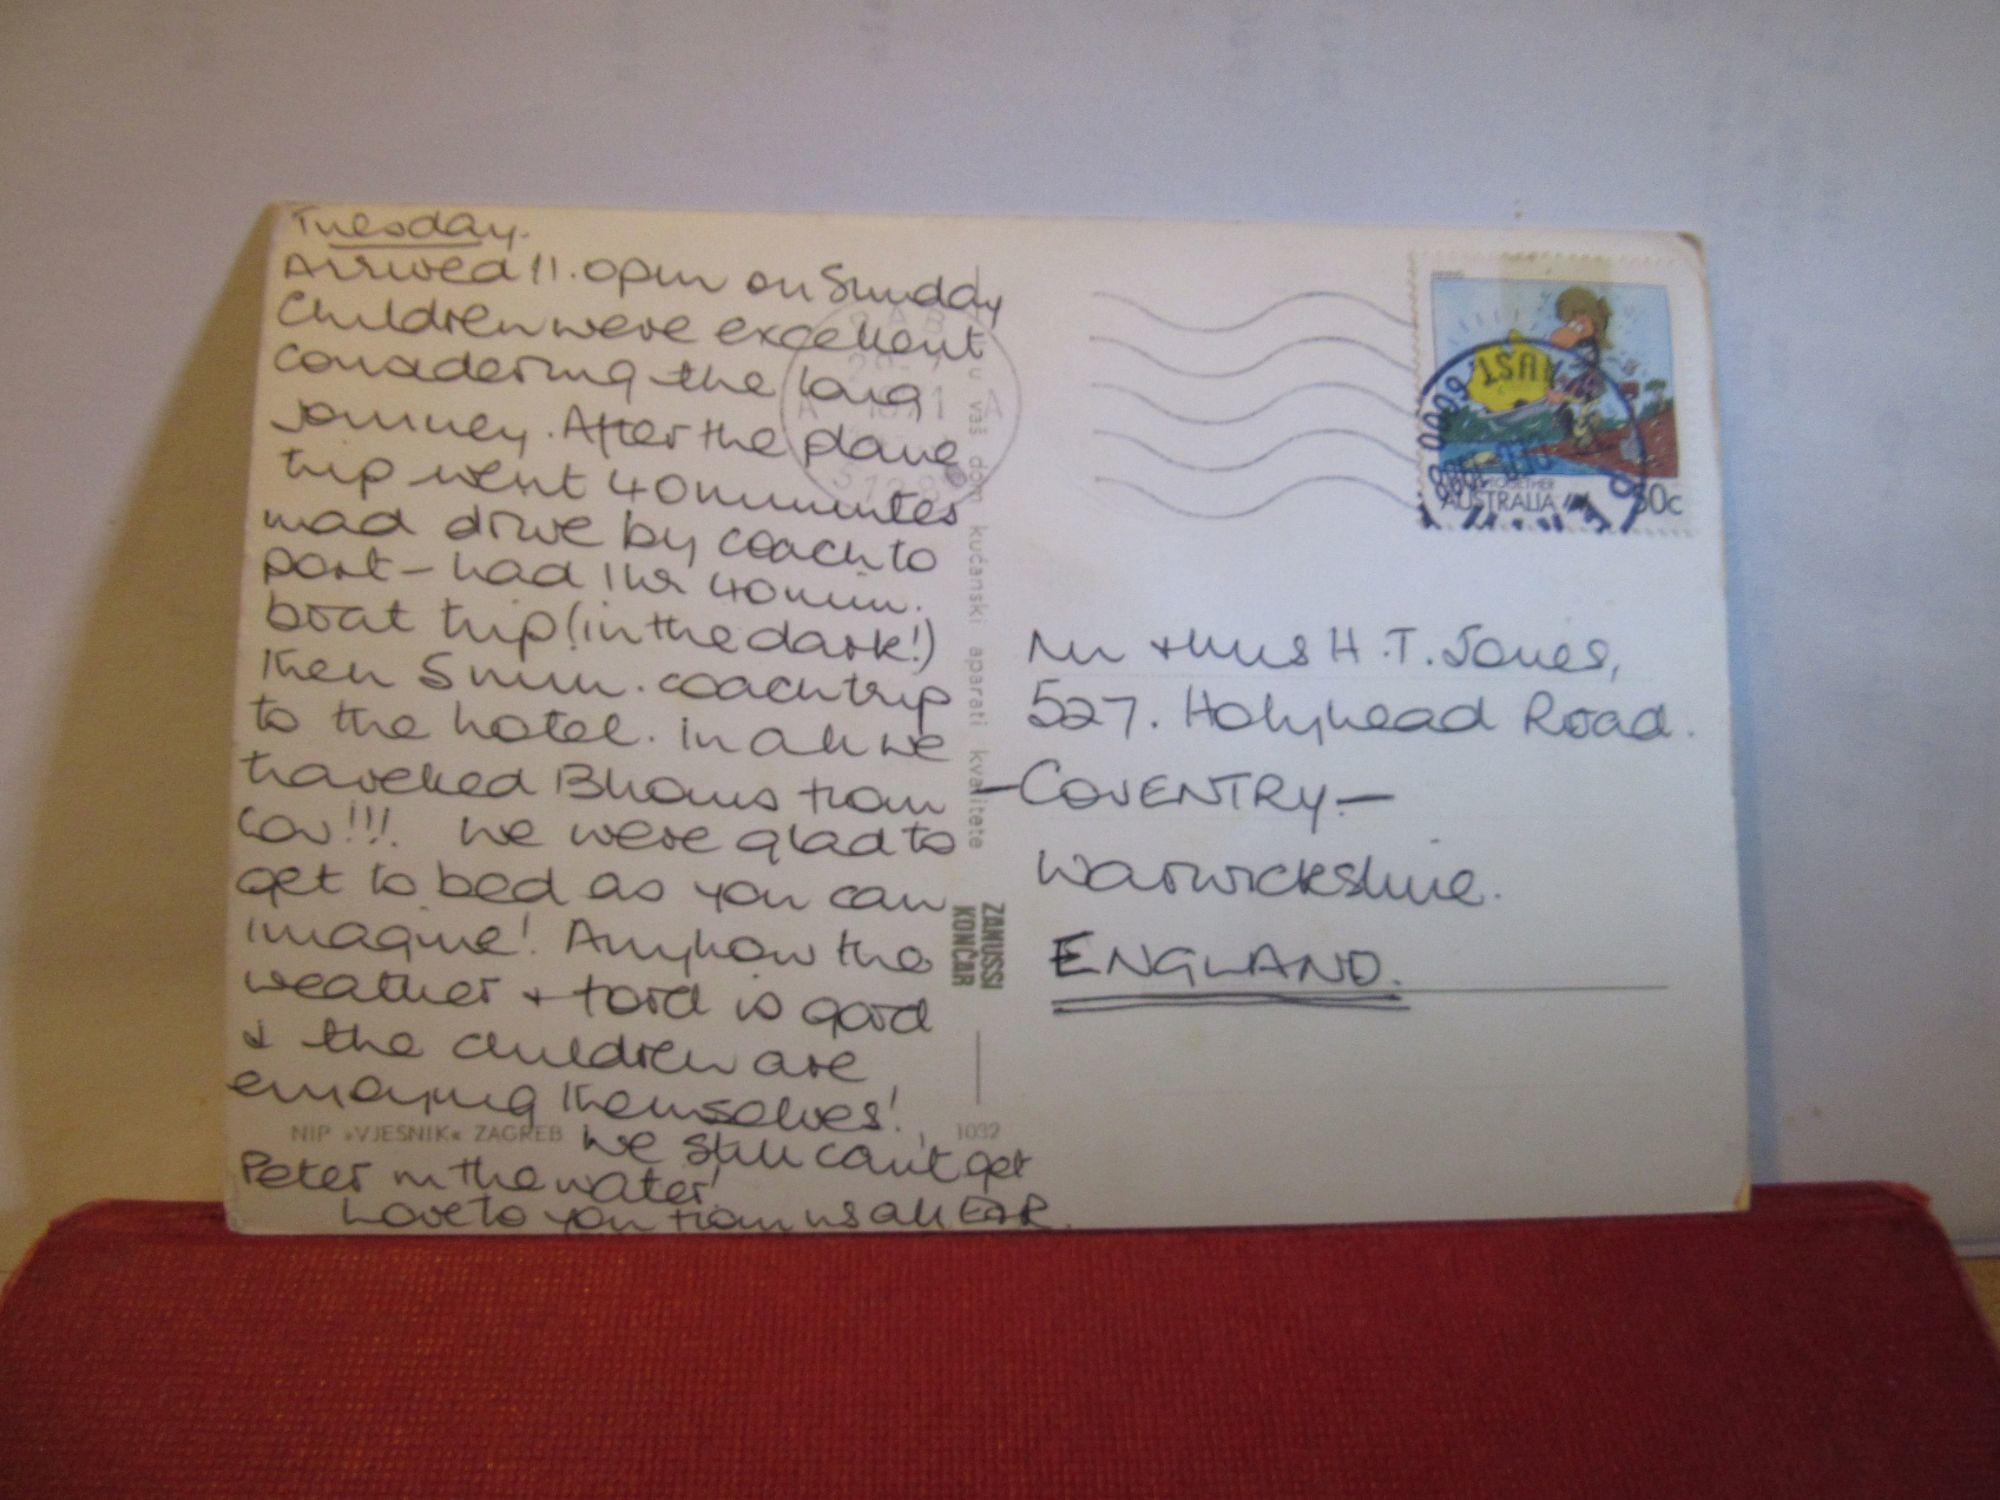 Tuesday.
Arrived 11.0pm on Sunday
Children were excellent
considering the long
journey. After the plane
trip went 40 minutes
mad drive by coach to
port - had 1 hr 40 min.
boat trip (in the dark!)
Then 5 min. coach trip
to the hotel. in all we
travelled 13 hours from
Cov!!! We were glad to
get to bed as you can
imagine! Anyhow the
weather & food is good
& the children are
enjoying themselves!
We still can't get
Peter in the water!
Love to you from us all
NIP »VJESNIK« ZAGREB
1032
u vaš dom kućanski aparati kvalitete
ZANUSSI
KONČAR
RAB
A 1971 A
51280
AUST
6000
TOGETHER
AUSTRALIA
30c
Mr & Mrs H.T. Jones,
527. Holyhead Road.
- COVENTRY -
Warwickshire.
ENGLAND.